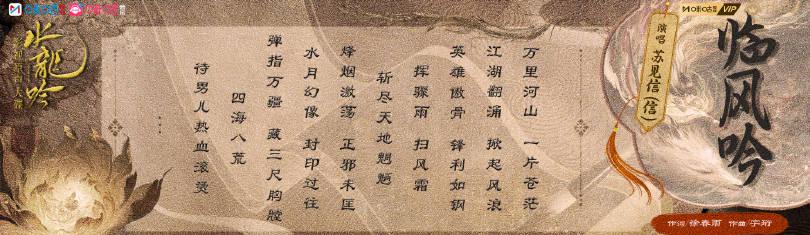 咪咕音乐
VIP
临风吟
演唱 苏见信(信)
万里河山 一片苍茫
江湖翻涌 掀起风浪
英雄傲骨 锋利如钢
挥骤雨 扫风霜
斩尽天地魍魉
烽烟激荡 正邪未匡
水月幻像 封印过往
弹指万疆 藏三尺胸膛
四海八荒
待男儿热血滚烫
水龙吟
作词/徐春雨 作曲/宇珩